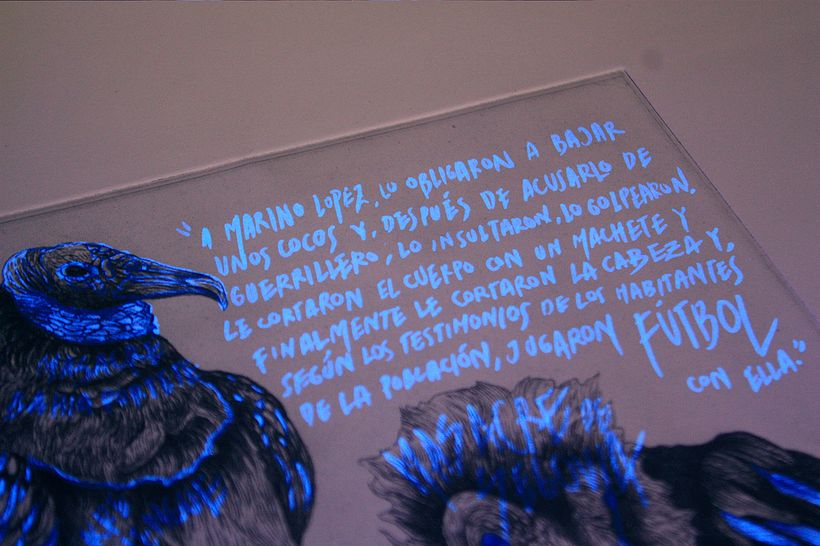 "A MARINO LOPEZ, LO OBLIGARON A BAJAR
UNOS COCOS Y, DESPUÉS DE ACUSARLO DE
GUERRILLERO, LO INSULTARON, LO GOLPEARON.
LE CORTARON EL CUERPO CON UN MACHETE Y
FINALMENTE LE CORTARON LA CABEZA Y,
SEGÚN LOS TESTIMONIOS DE LOS HABITANTES
DE LA POBLACIÓN, JUGARON FÚTBOL
CON ELLA."
MASACRE DE